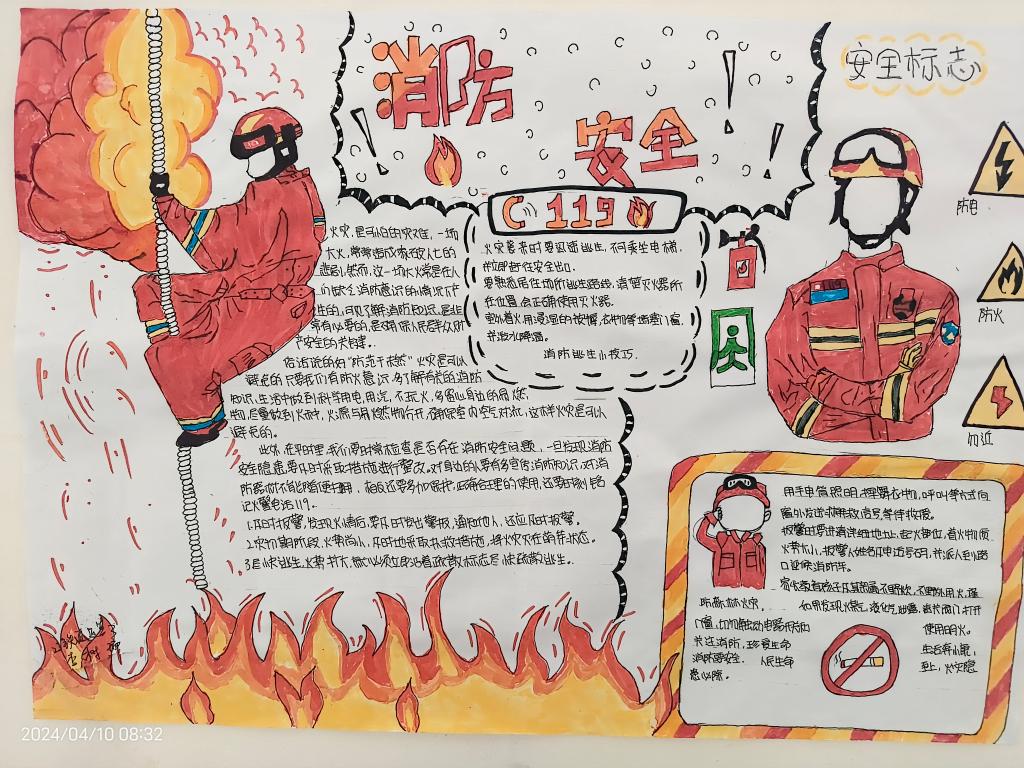 消防
安全
安全标志
119
火灾,是可怕的灾难,一场
大火,常常造成家破人亡的
悲剧。然而,这一场火常是在人
们缺乏消防意识的情况下产
生的,可见了解消防知识,是非
常有必要的,是确保人民群众财
产安全的关键。
俗话说的好“防范于未然”火灾是可以
避免的只要我们有防火意识,多了解有关的消防
知识,生活中做到科学用电,用气,不玩火,多留心身边的易燃
物,尽量做到火种,火源与易燃物分开,确保室内空气对流,这样火灾是可以
避免的。
此外,在平时里,我们要时常检查是否存在消防安全问题,一旦发现消防
安全隐患要及时采取措施进行整改,对身边的人要有多宣传消防知识,对消
防器材不能随便挪用,相反还要多加保护,正确合理的使用,还要时刻铭
记火警电话119。
1.及时报警,发现火情后要及时发出警报,通知他人,还应及时报警。
2.灾初期阶段,火势尚小,及时地采取扑救措施,将火灾灭在萌芽状态。
3.尽快逃生,火势扩大,
火灾袭来时要迅速逃生,不可乘坐电梯,
并立即奔往安全出口。
要熟悉居住场所逃生路线,清楚灭火器所
在位置,会正确使用灭火器。
并泼水降温。
消防逃生小技巧.
防电
防火
勿近
用手电筒照明,挥舞衣物,呼叫等方式向
窗外发送求救信号,等待救援。
报警时要讲清详细地址,起火部位,着火物质,
火势大小,报警人姓名和电话号码,并派人到路
口迎候消防车。
防森林火灾,
使用明火。
关注消防,珍爱生命
消防安全,
人民生命
至上,火灾隐
患必除。
2024/04/10 08:32